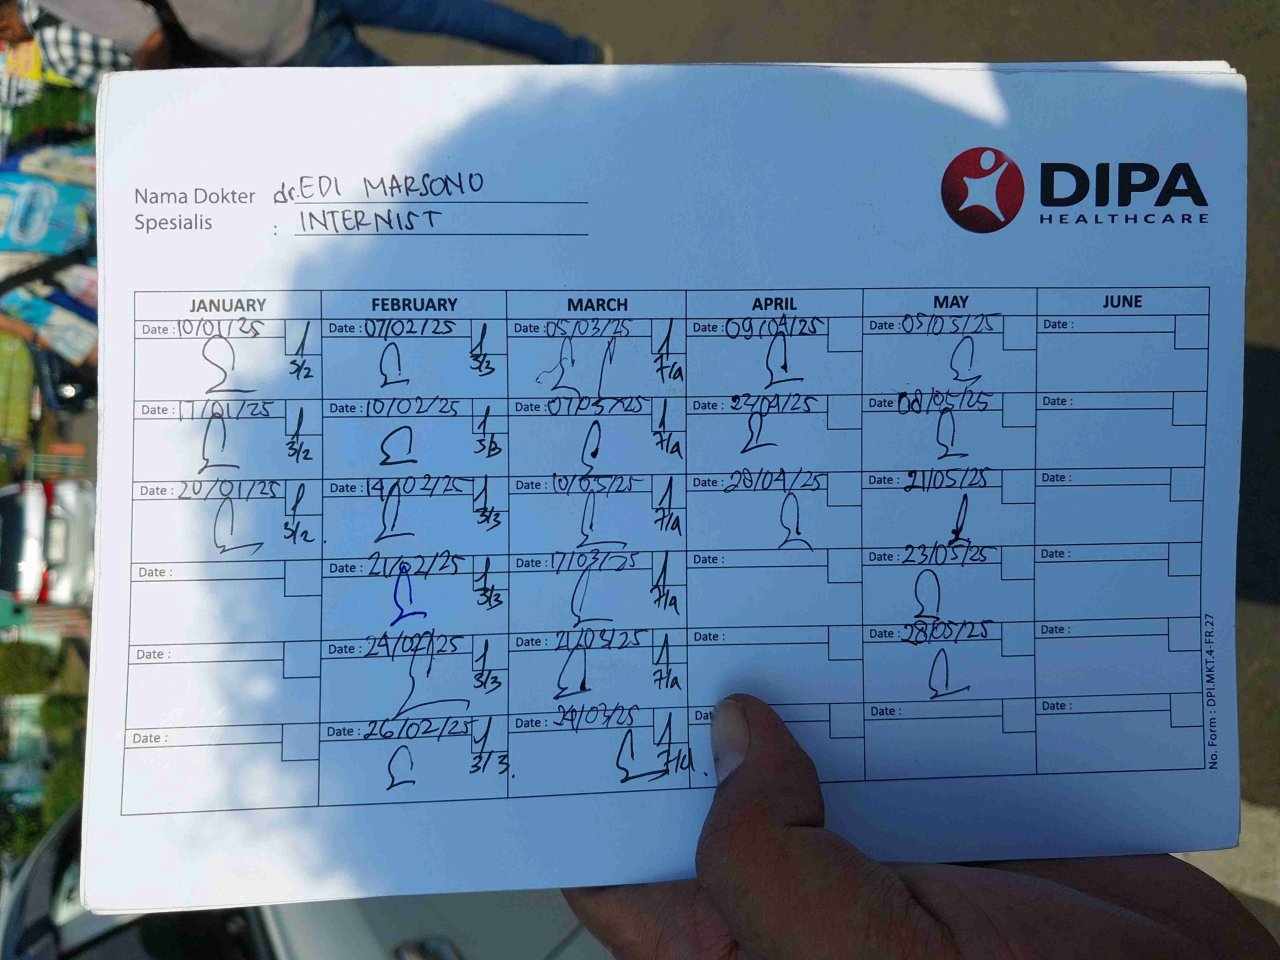 Nama Dokter dr. EDI MARSONO
Spesialis : INTERNIST
DIPA
HEALTHCARE
JANUARY FEBRUARY MARCH APRIL MAY JUNE
Date : 10/01/25 Date : 07/02/25 Date : 05/03/25 Date : 09/04/25 Date : 05/05/25 Date :
3/2 3/3 7/4
Date : 17/01/25 Date : 10/02/25 Date : 07/03/25 Date : 23/04/25 Date : 08/05/25 Date :
3/2 3/3 7/4
Date : 20/01/25 Date : 14/02/25 Date : 10/03/25 Date : 28/04/25 Date : 21/05/25 Date :
3/2 3/3 7/4
Date : Date : 21/02/25 Date : 17/03/25 Date : Date : 23/05/25 Date :
3/3 7/4
Date : Date : 24/02/25 Date : 21/03/25 Date : Date : 28/05/25 Date :
3/3 7/4
Date : Date : 26/02/25 Date : 24/03/25 Date : Date :
3/3 7/4
No. Form : DPI.MKT.4-FR.27